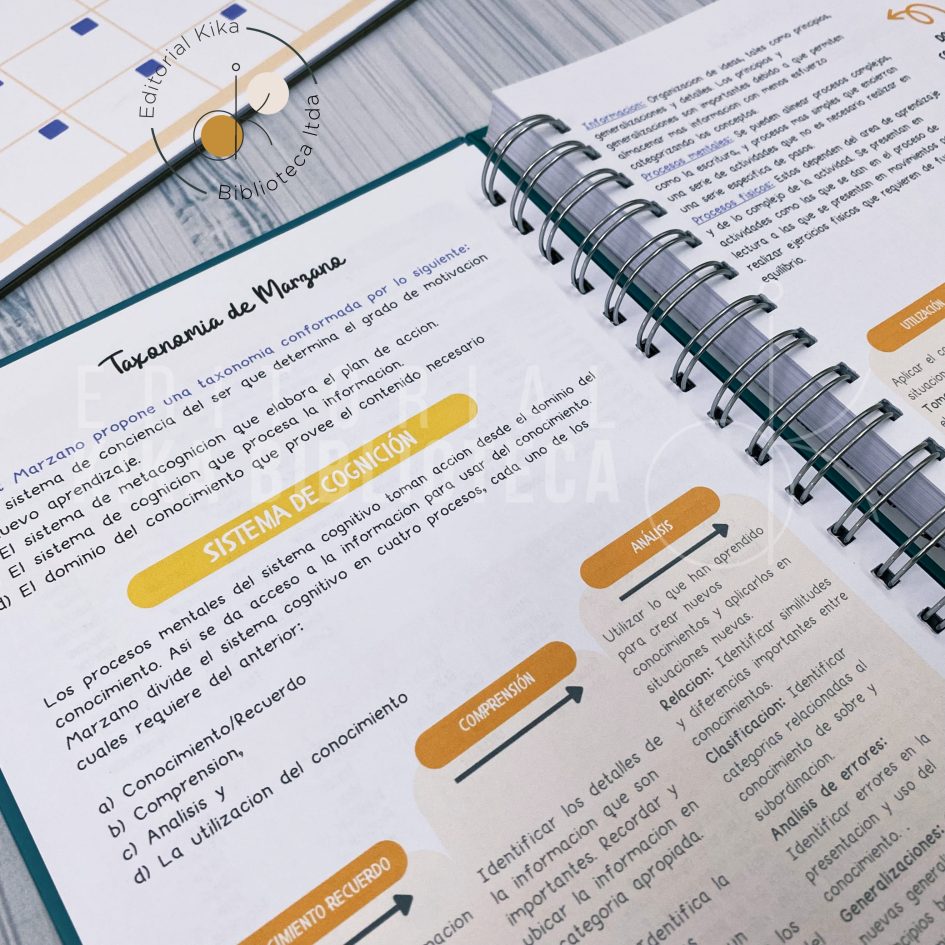 Editorial Kika
Biblioteca ltda
EDITORIAL
KIKA BIBLIOTECA
Taxonomia de Marzano
Marzano propone una taxonomia conformada por lo siguiente:
sistema de conciencia del ser que determina el grado de motivacion
nuevo aprendizaje.
El sistema de metacognicion que elabora el plan de accion.
El sistema de cognicion que procesa la informacion.
d) El dominio del conocimiento que provee el contenido necesario
SISTEMA DE COGNICIÓN
Los procesos mentales del sistema cognitivo toman accion desde el dominio del
conocimiento. Asi se da acceso a la informacion para usar del conocimiento.
Marzano divide el sistema cognitivo en cuatro procesos, cada uno de los
cuales requiere del anterior:
a) Conocimiento/Recuerdo
b) Comprension,
c) Analisis y
d) La utilizacion del conocimiento
RECUERDO
COMPRENSIÓN
Identificar los detalles de
la informacion que son
importantes. Recordar y
ubicar la informacion en
categoria apropiada.
la
ANÁLISIS
Utilizar lo que han aprendido
para crear nuevos
conocimientos y aplicarlos en
situaciones nuevas.
Relacion: Identificar similitudes
y diferencias importantes entre
conocimientos.
Clasificacion: Identificar
categorias relacionadas al
conocimiento de sobre y
subordinacion.
Analisis de errores:
Identificar errores en la
presentacion y uso del
conocimiento. .
Generalizaciones:
nuevas
Informacion: Organizacion de ideas, tales como principios,
generalizaciones y detalles. Los principios y
generalizaciones son importantes debido a que permiten
almacenar mas informacion con menos esfuerzo
categorizando los conceptos.
Procesos mentales: Se pueden alinear procesos complejos,
como la escritura, y procesos mas simples que encierran
una serie de actividades que no es necesario realizar
una serie especifica de pasos.
Procesos fisicos: Estos dependen del area de aprendizaje
y de lo complejo de la actividad. Se presentan en
actividades como las que se dan en el proceso de
lectura a las que se presentan en movimientos
realizar ejercicios fisicos que requieren de
equilibrio.
UTILIZACIÓN
Aplicar el